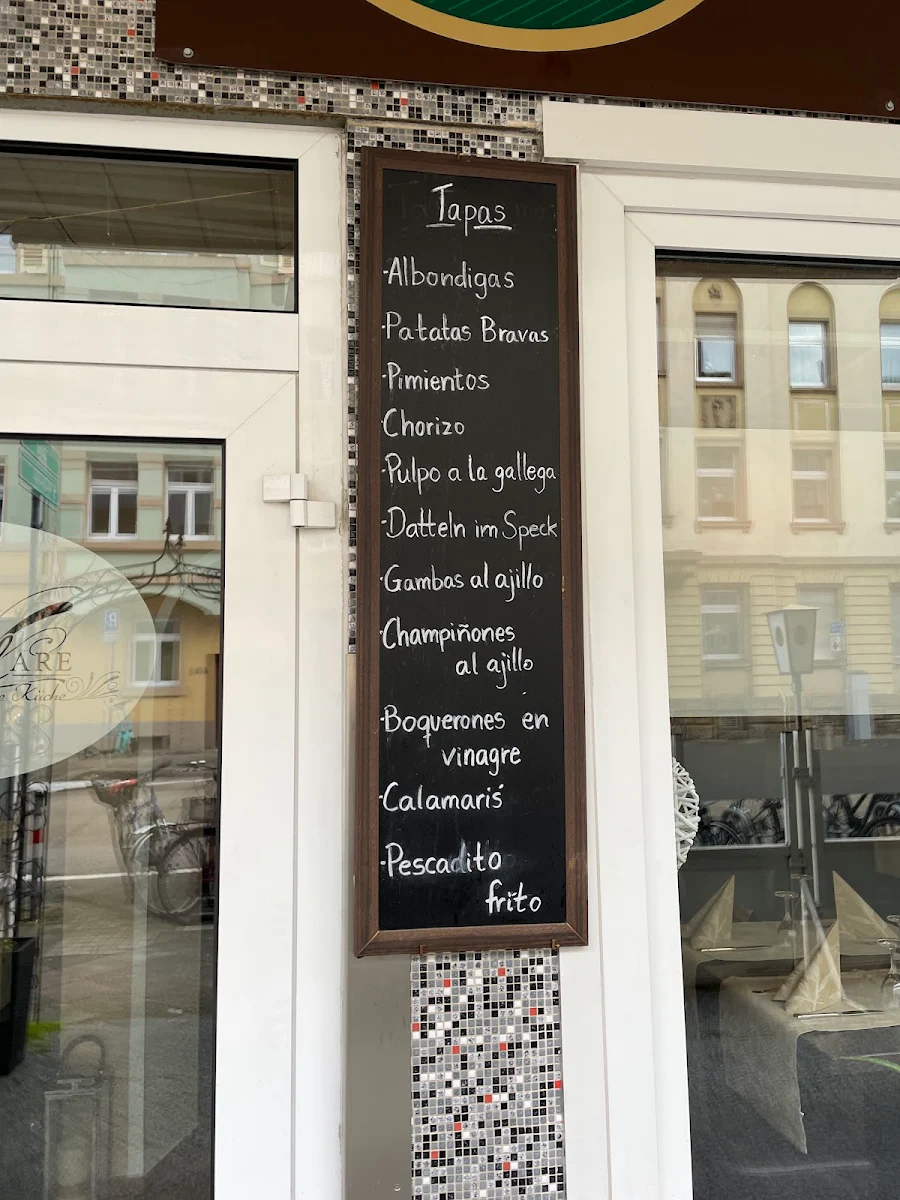 Tapas
-Albondigas
-Patatas Bravas
-Pimientos
-Chorizo
-Pulpo a la gallega
-Datteln im Speck
-Gambas al ajillo
-Champiñones
al ajillo
-Boquerones en
vinagre
-Calamaris
-Pescadito
frito
ARE
Küche